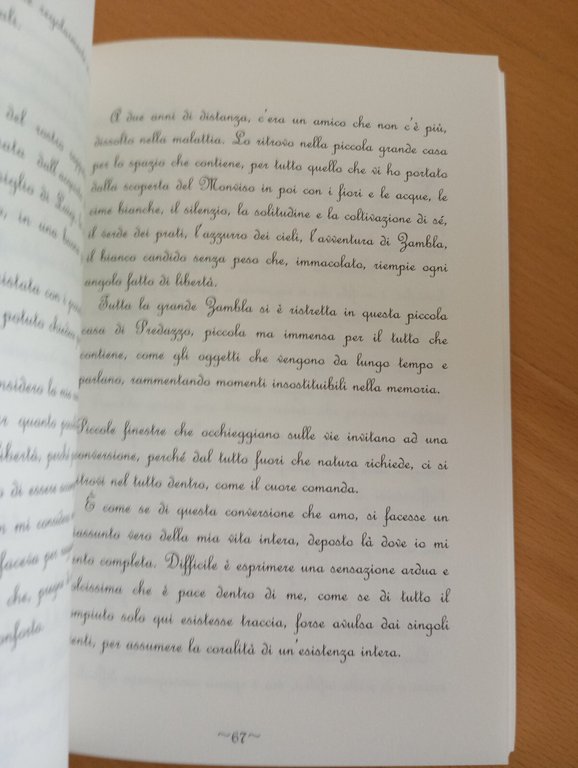 e
ali.
del nostro
iglio di
o, in una
istata con i
potuto
nsidero la mia
er quanto
libertà,
o di essere
n mi consider
faceva per
che,
onforto.
A due anni di distanza, c'era un amico che non c'è più,
dissolto nella malattia. Lo ritrovo nella piccola grande casa
per lo spazio che contiene, per tutto quello che vi ho portato
dalla scoperta del Monviso in poi con i fiori e le acque, le
cime bianche, il silenzio, la solitudine e la coltivazione di sé,
il verde dei prati, l'azzurro dei cieli, l'avventura di Zambla,
il bianco candido senza peso che, immacolato, riempie ogni
angolo fatto di libertà.
Tutta la grande Zambla si è ristretta in questa piccola
casa di Predazzo, piccola ma immensa per il tutto che
contiene, come gli oggetti che vengono da lungo tempo e
parlano, rammentando momenti insostituibili nella memoria.
Piccole finestre che occhieggiano sulle vie invitano ad una
conversione, perché dal tutto fuori che natura richiede, ci si
ritrovi nel tutto dentro, come il cuore comanda.
È come se di questa conversione che amo, si facesse un
iassunto vero della mia vita intera, deposto là dove io mi
ento completa. Difficile è esprimere una sensazione ardua e
olcissima che è pace dentro di me, come se di tutto il
ompiuto solo qui esistesse traccia, forse avulsa dai singoli
enti, per assumere la coralità di un'esistenza intera.
~67~